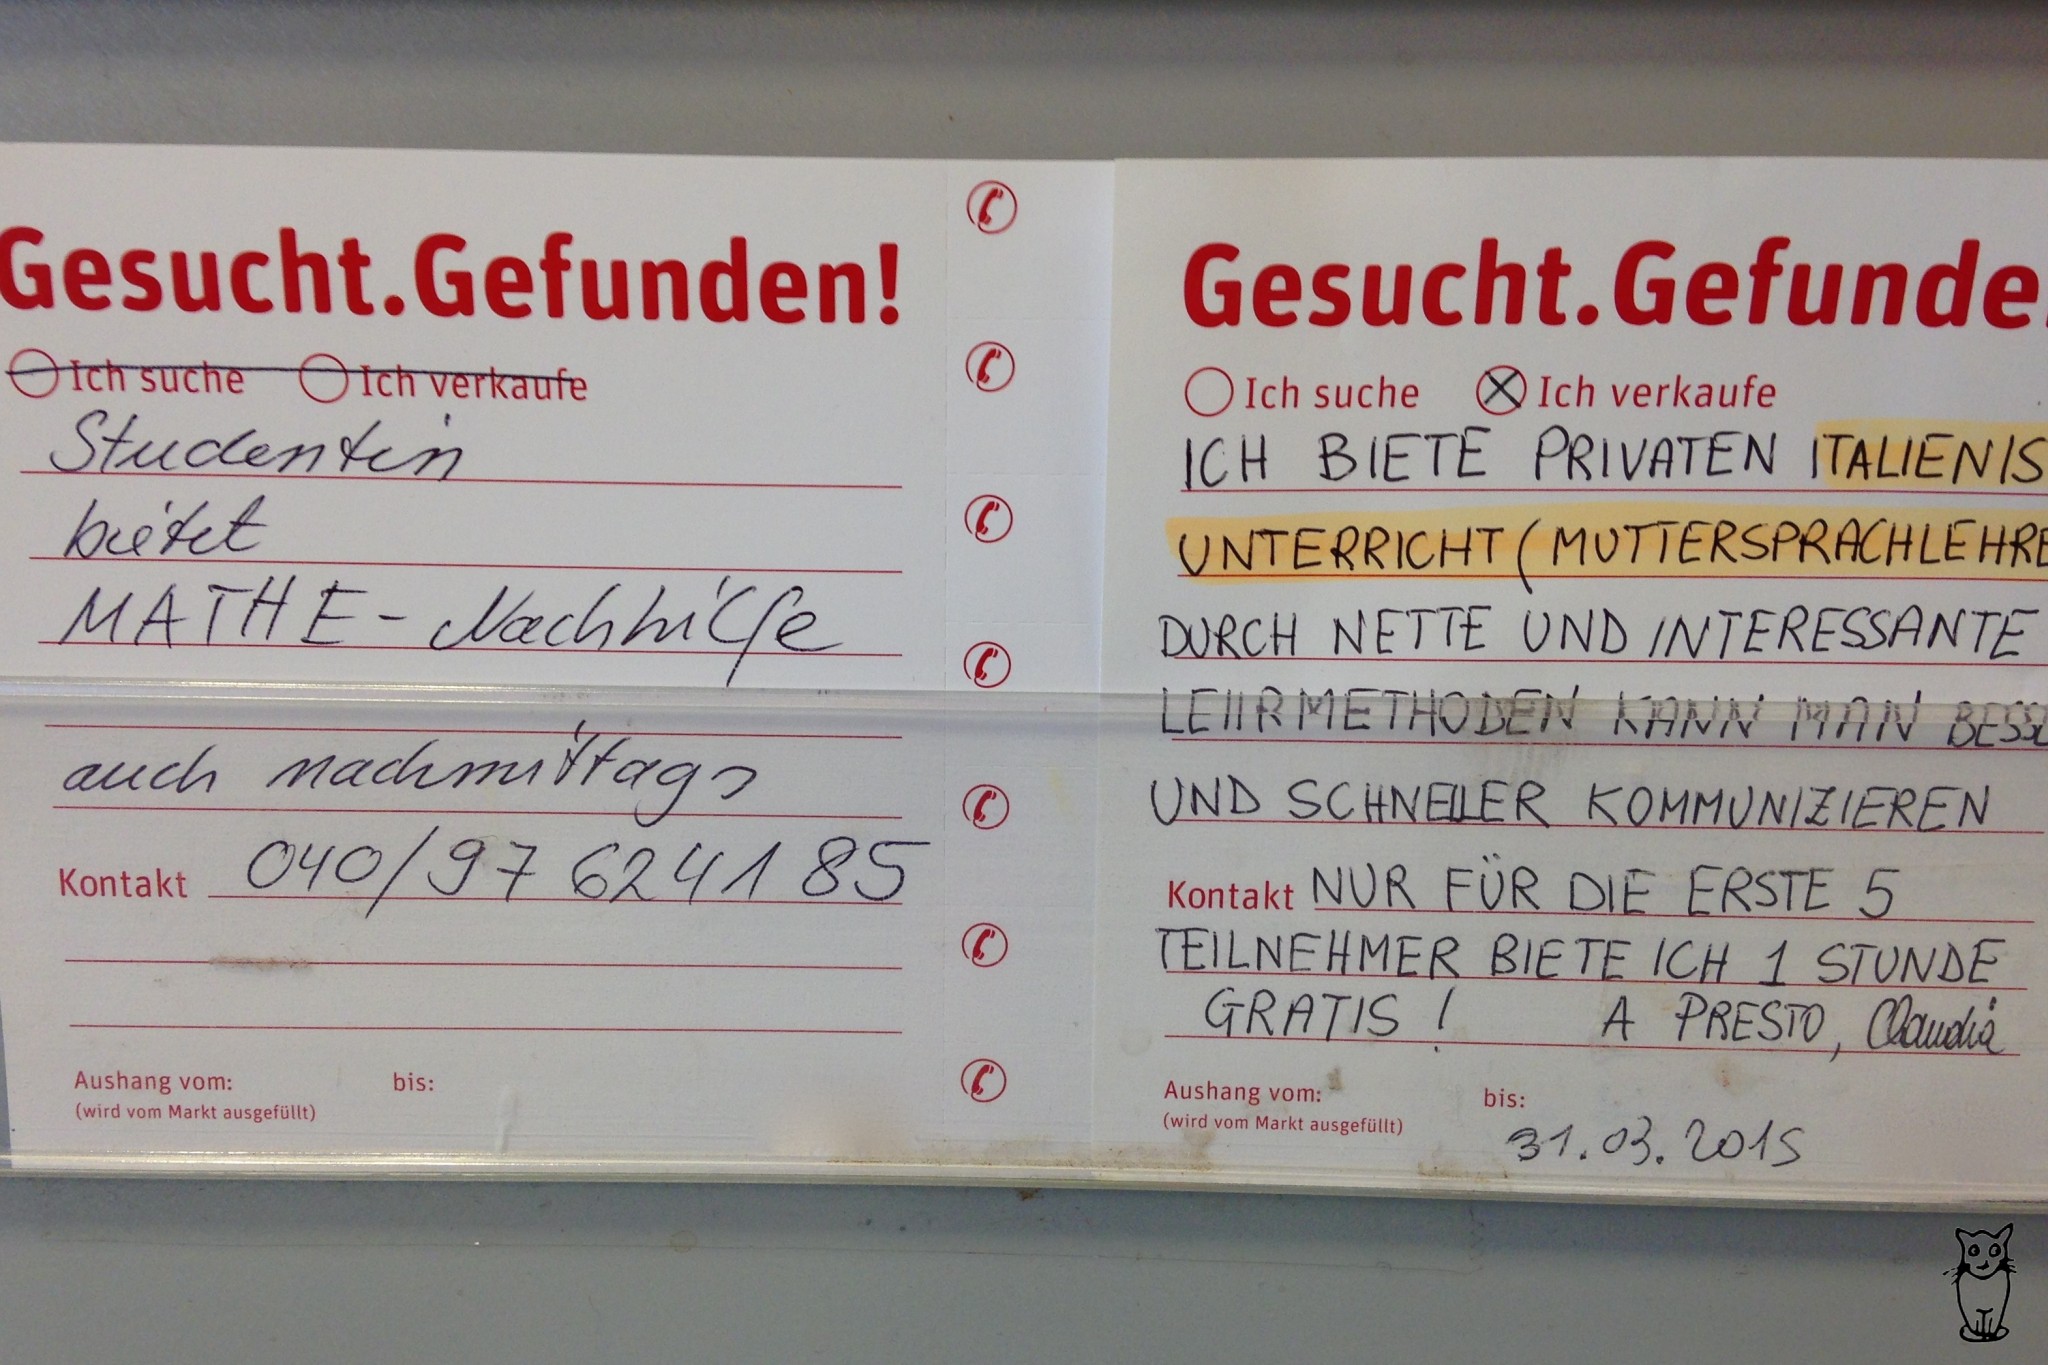 Gesucht.Gefunden!
Ich suche Ich verkaufe
Studentin
bietet
MATHE-Nachhilfe
auch nachmittags
Kontakt 040/97 6241 85
Aushang vom: bis:
(wird vom Markt ausgefüllt)
Gesucht.Gefunde
Ich suche Ich verkaufe
ICH BIETE PRIVATEN ITALIENIS
UNTERRICHT (MUTTERSPRACHLEHRE
DURCH NETTE UND INTERESSANTE
LEHRMETHODEN KANN MAN BESSE
UND SCHNELLER KOMMUNIZIEREN
Kontakt NUR FÜR DIE ERSTE 5
TEILNEHMER BIETE ICH 1 STUNDE
GRATIS! A PRESTO, Claudia
Aushang vom: bis:
(wird vom Markt ausgefüllt)
31.03.2015